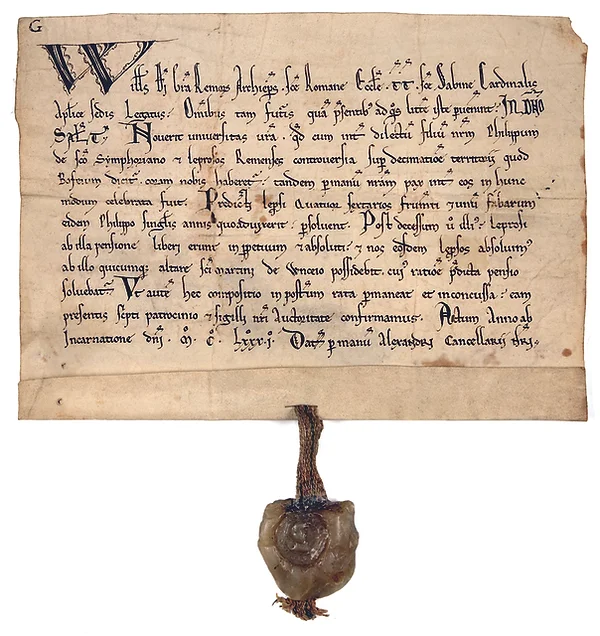 G
Willms di gra Remors Archieps. sce Romane Eccle. tt. sce Sabine Cardinalis
Aplice sedis Legatus. Omnibus tam futris qua psentib' ad qos littere iste puenerint. IN DNO
SALT. Noverit universitas vra. qd cum int dilectu filiu nrm Philippum
de sco Symphoriano & leprosos Remenses controversia sup decimatioe territorii quod
dicit. coram nobis haberet. tandem p manu nram pax int eos in hunc
modum celebrata fuit. Predicti lepsi Quatuor sextarios frumti & unu fabarum
eidem Philippo singlis annis quoad vixerit. psolvent. Post decessum u illi'. leprosi
ab illa pensione liberi erunt in ppetuum & absoluti. & nos eosdem lepsos absolvim'
ab illo quicumq; altare sci martini de possidebit. cui' ratioe pdicta pensio
solvebat. Ut aute hec compositio in postum rata pmaneat et inconcussa. eam
presentis scpti patrocinio & sigilli nri Auctoritate confirmamus. Actum Anno ab
Incarnatione dni. M. C. Lxxx. i. Dat p manu Alexandri Cancellarii nri.